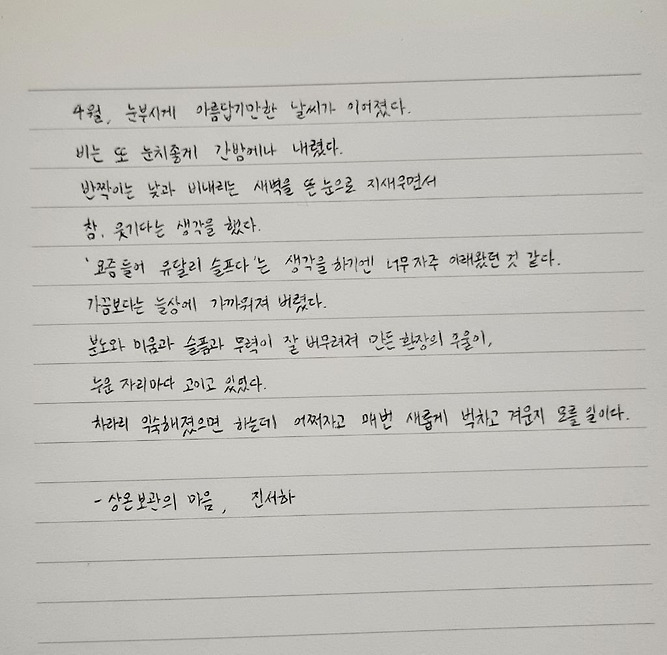 4월, 눈부시게 아름답기만한 날씨가 이어졌다.
비는 또 눈치좋게 간밤에나 내렸다.
반짝이는 낮과 비내리는 새벽을 뜬눈으로 지새우면서
참, 웃기다는 생각을 했다.
'요즘들어 유달리 슬프다'는 생각을 하기엔 너무 자주 이래왔던 것 같다.
가끔보다는 늘상에 가까워져 버렸다.
분노와 미움과 슬픔과 무력이 잘 버무려져 만든 환장의 우울이,
누운 자리마다 고이고 있었다.
차라리 익숙해졌으면 하는데 어쩌자고 매번 새롭게 벅차고 겨운지 모를 일이다.
- 상온보관의 마음, 진서하